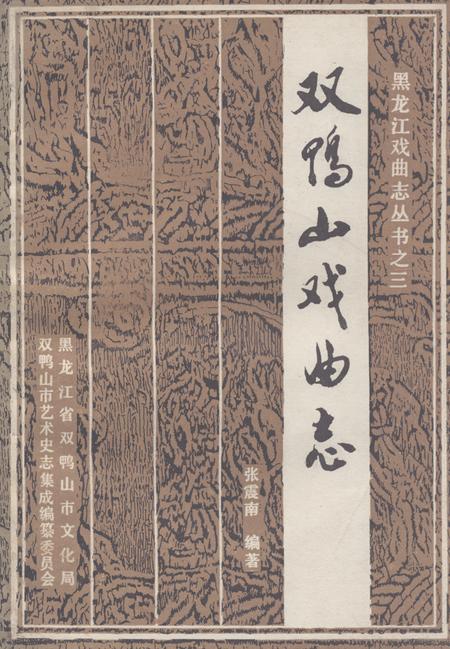 黑龙江戏曲志丛书之三
双鸭山戏曲志
张震南 编著
黑龙江省双鸭山市文化局
双鸭山市艺术史志集成编纂委员会